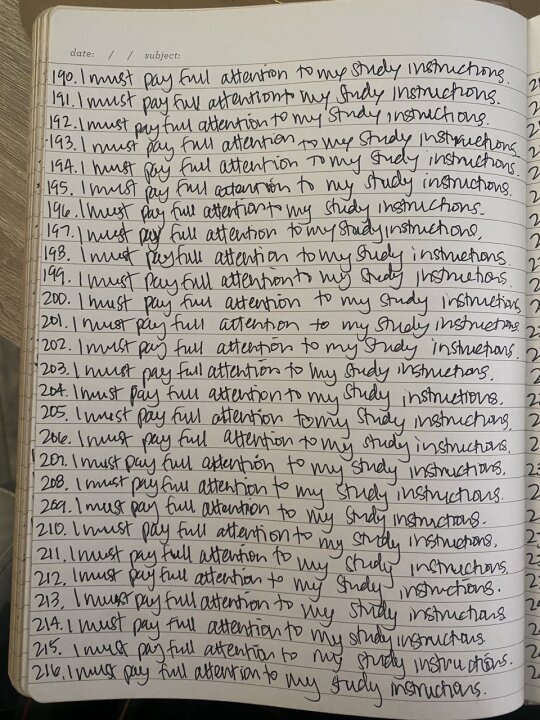 date: / / subject:
190. I must pay full attention to my study instructions.
191. I must pay full attention to my study instructions.
192. I must pay full attention to my study instructions.
193. I must pay full attention to my study instructions.
194. I must pay full attention to my study instructions.
195. I must pay full attention to my study instructions.
196. I must pay full attention to my study instructions.
197. I must pay full attention to my study instructions.
198. I must pay full attention to my study instructions.
199. I must pay full attention to my study instructions.
200. I must pay full attention to my study instructions
201. I must pay full attention to my study instructions
202. I must pay full attention to my study instructions.
203. I must pay full attention to my study instructions.
204. I must pay full attention to my study instructions.
205. I must pay full attention to my study instructions.
206. I must pay full attention to my study instructions.
207. I must pay full attention to my study instructions.
208. I must pay full attention to my study instructions.
209. I must pay full attention to my study instructions.
210. I must pay full attention to my study instructions.
211. I must pay full attention to my study instructions.
212. I must pay full attention to my study instructions.
213. I must pay full attention to my study instructions
214. I must pay full attention to my study instructions
215. I must pay full attention to my study instructions.
216. I must pay full attention to my study instructions.